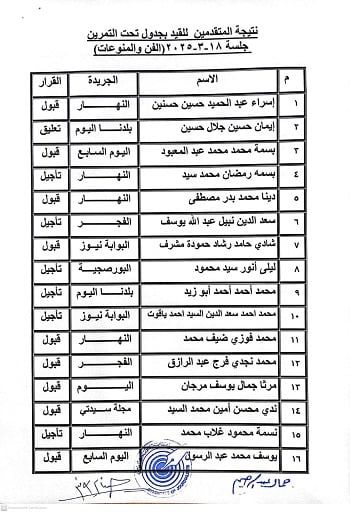 نتيجة المتقدمين للقيد بجدول تحت التمرين
جلسة ١٨-٣-٢٠٢٥ (الفن والمنوعات)
م الاسم الجريدة القرار
١ إسراء عبد الحميد حسين حسنين النهار قبول
٢ إيمان حسين جلال حسين بلدنا اليوم تعليق
٣ بسمة محمد محمد عبد المعبود اليوم السابع قبول
٤ بسمه رمضان محمد سيد النهار تأجيل
٥ دينا محمد بدر مصطفى النهار قبول
٦ سعد الدين نبيل عبد الله يوسف الفجر تأجيل
٧ شادي حامد رشاد حمودة مشرف البوابة نيوز قبول
٨ ليلى أنور سيد محمود البورصجية تأجيل
٩ محمد أحمد أحمد أبو زيد بلدنا اليوم تأجيل
١٠ محمد احمد سعد الدين السيد احمد ياقوت البوابة نيوز تأجيل
١١ محمد فوزي ضيف محمد النهار قبول
١٢ محمد نجدي فرج عبد الرازق الفجر تأجيل
١٣ مرثا جمال يوسف مرجان اليوم قبول
١٤ ندي محسن أمين محمد السيد مجلة سيدتي قبول
١٥ نسمة محمود غلاب محمد النهار تأجيل
١٦ يوسف محمد عبد الرسول اليوم السابع قبول